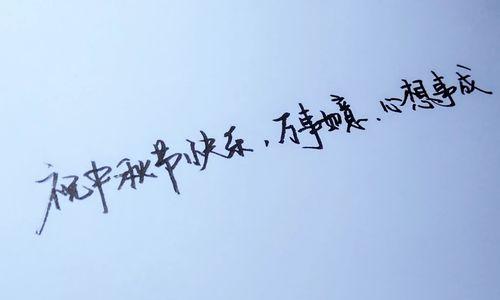 祝中秋节快乐，万事如意、心想事成